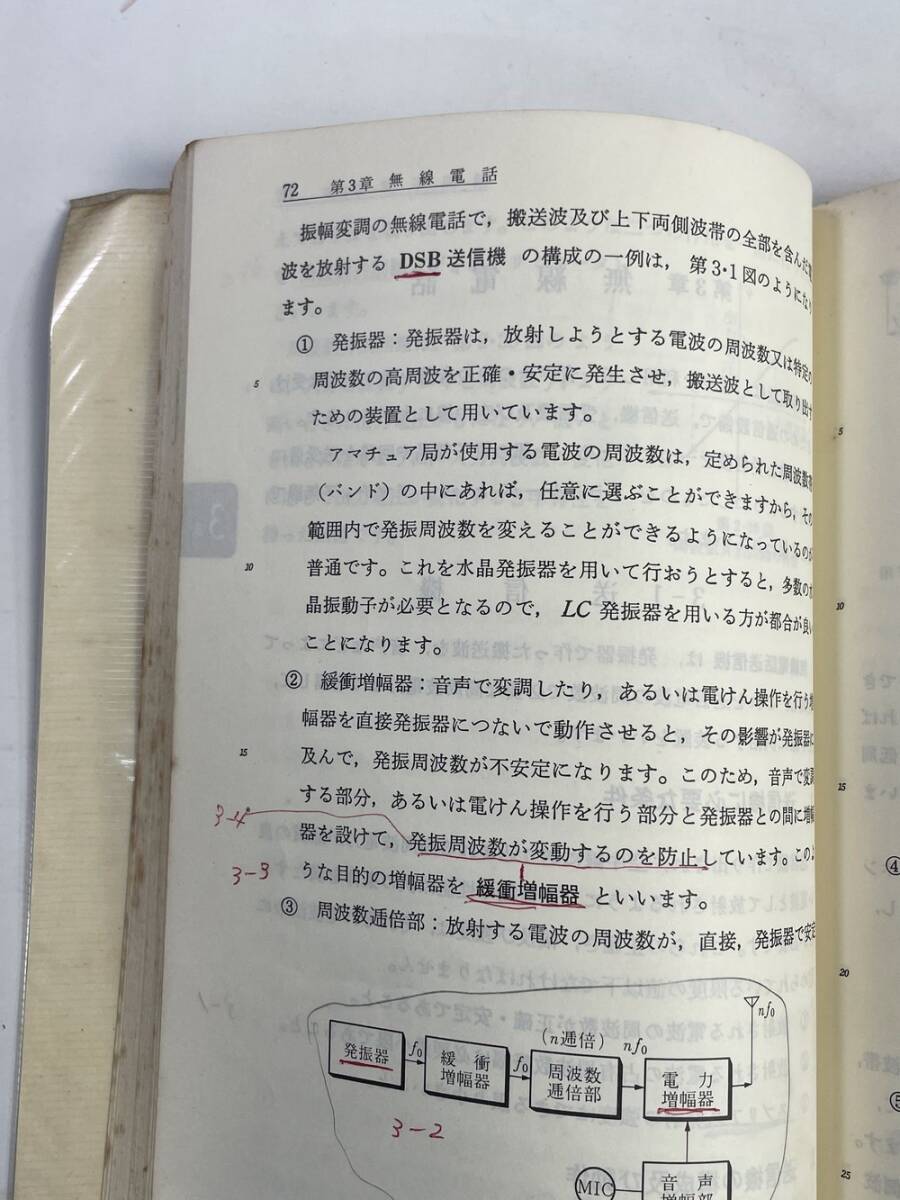 72 第3章 無線電話
振幅変調の無線電話で，搬送波及び上下両側波帯の全部を含んだ
波を放射する DSB 送信機 の構成の一例は，第3・1図のようになり
ます。
① 発振器：発振器は，放射しようとする電波の周波数又は特定の
5 周波数の高周波を正確・安定に発生させ，搬送波として取り出す
ための装置として用いています。
アマチュア局が使用する電波の周波数は，定められた周波数帯
（バンド）の中にあれば，任意に選ぶことができますから，その
範囲内で発振周波数を変えることができるようになっているのが
10 普通です。これを水晶発振器を用いて行おうとすると，多数の
晶振動子が必要となるので，LC 発振器を用いる方が都合が良い
ことになります。
② 緩衝増幅器：音声で変調したり，あるいは電けん操作を行う増
幅器を直接発振器につないで動作させると，その影響が発振器に
15 及んで，発振周波数が不安定になります。このため，音声で変調
する部分，あるいは電けん操作を行う部分と発振器との間に増幅
3-4
器を設けて，発振周波数が変動するのを防止しています。この
3-3
うな目的の増幅器を 緩衝増幅器 といいます。
③ 周波数逓倍部：放射する電波の周波数が，直接，発振器で安定
発振器
f0
緩衝
増幅器
f0
(n逓倍)
周波数
逓倍部
nf0
電力
増幅器
nf0
3-2
MIC
音声
増幅部
5
10
15
20
25
④
⑤